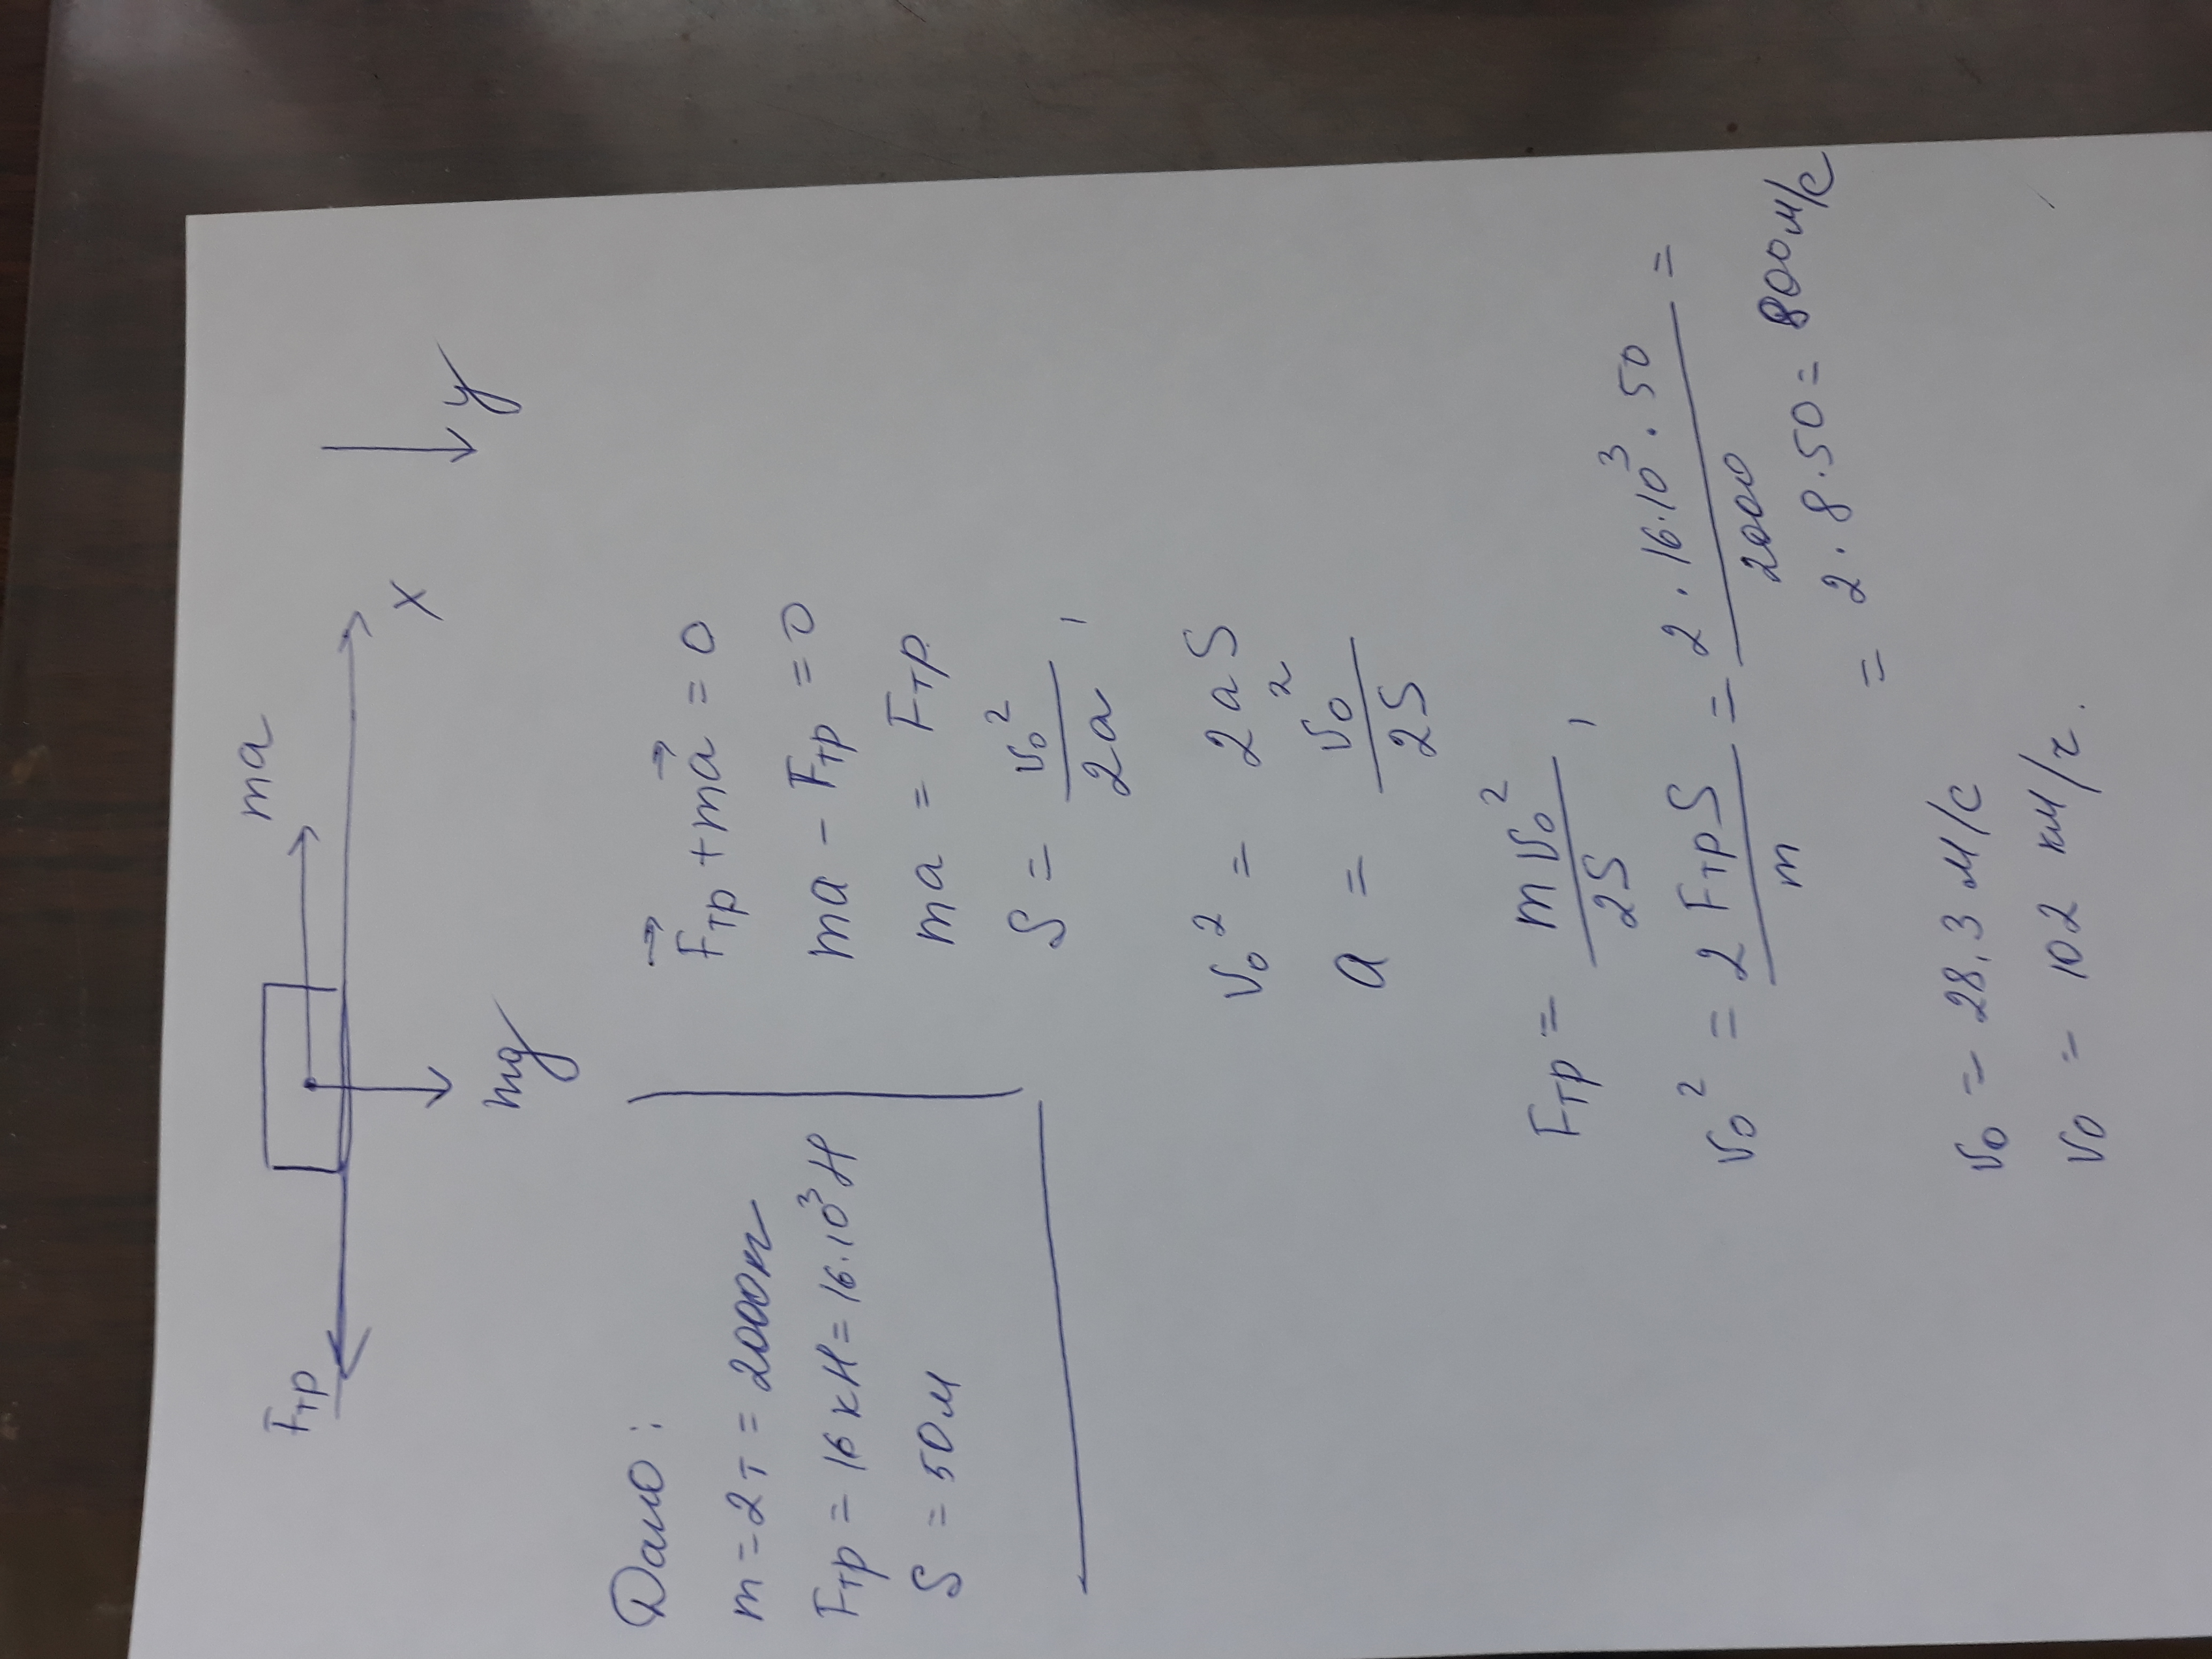 ma
Fтр
x
y
mg
Дано:
m = 2т = 2000кг
Fтр = 16 кН = 16·10³Н
S = 50м
F⃗тр + ma⃗ = 0
ma - Fтр = 0
ma = Fтр
S = v₀²/2a,
v₀² = 2aS
a = v₀²/2S
Fтр = mv₀²/2S,
v₀² = 2FтрS/m = 2·16·10³·50/2000 =
= 2·8·50 = 800м/с
v₀ = 28,3 м/с
v₀ = 102 км/ч.